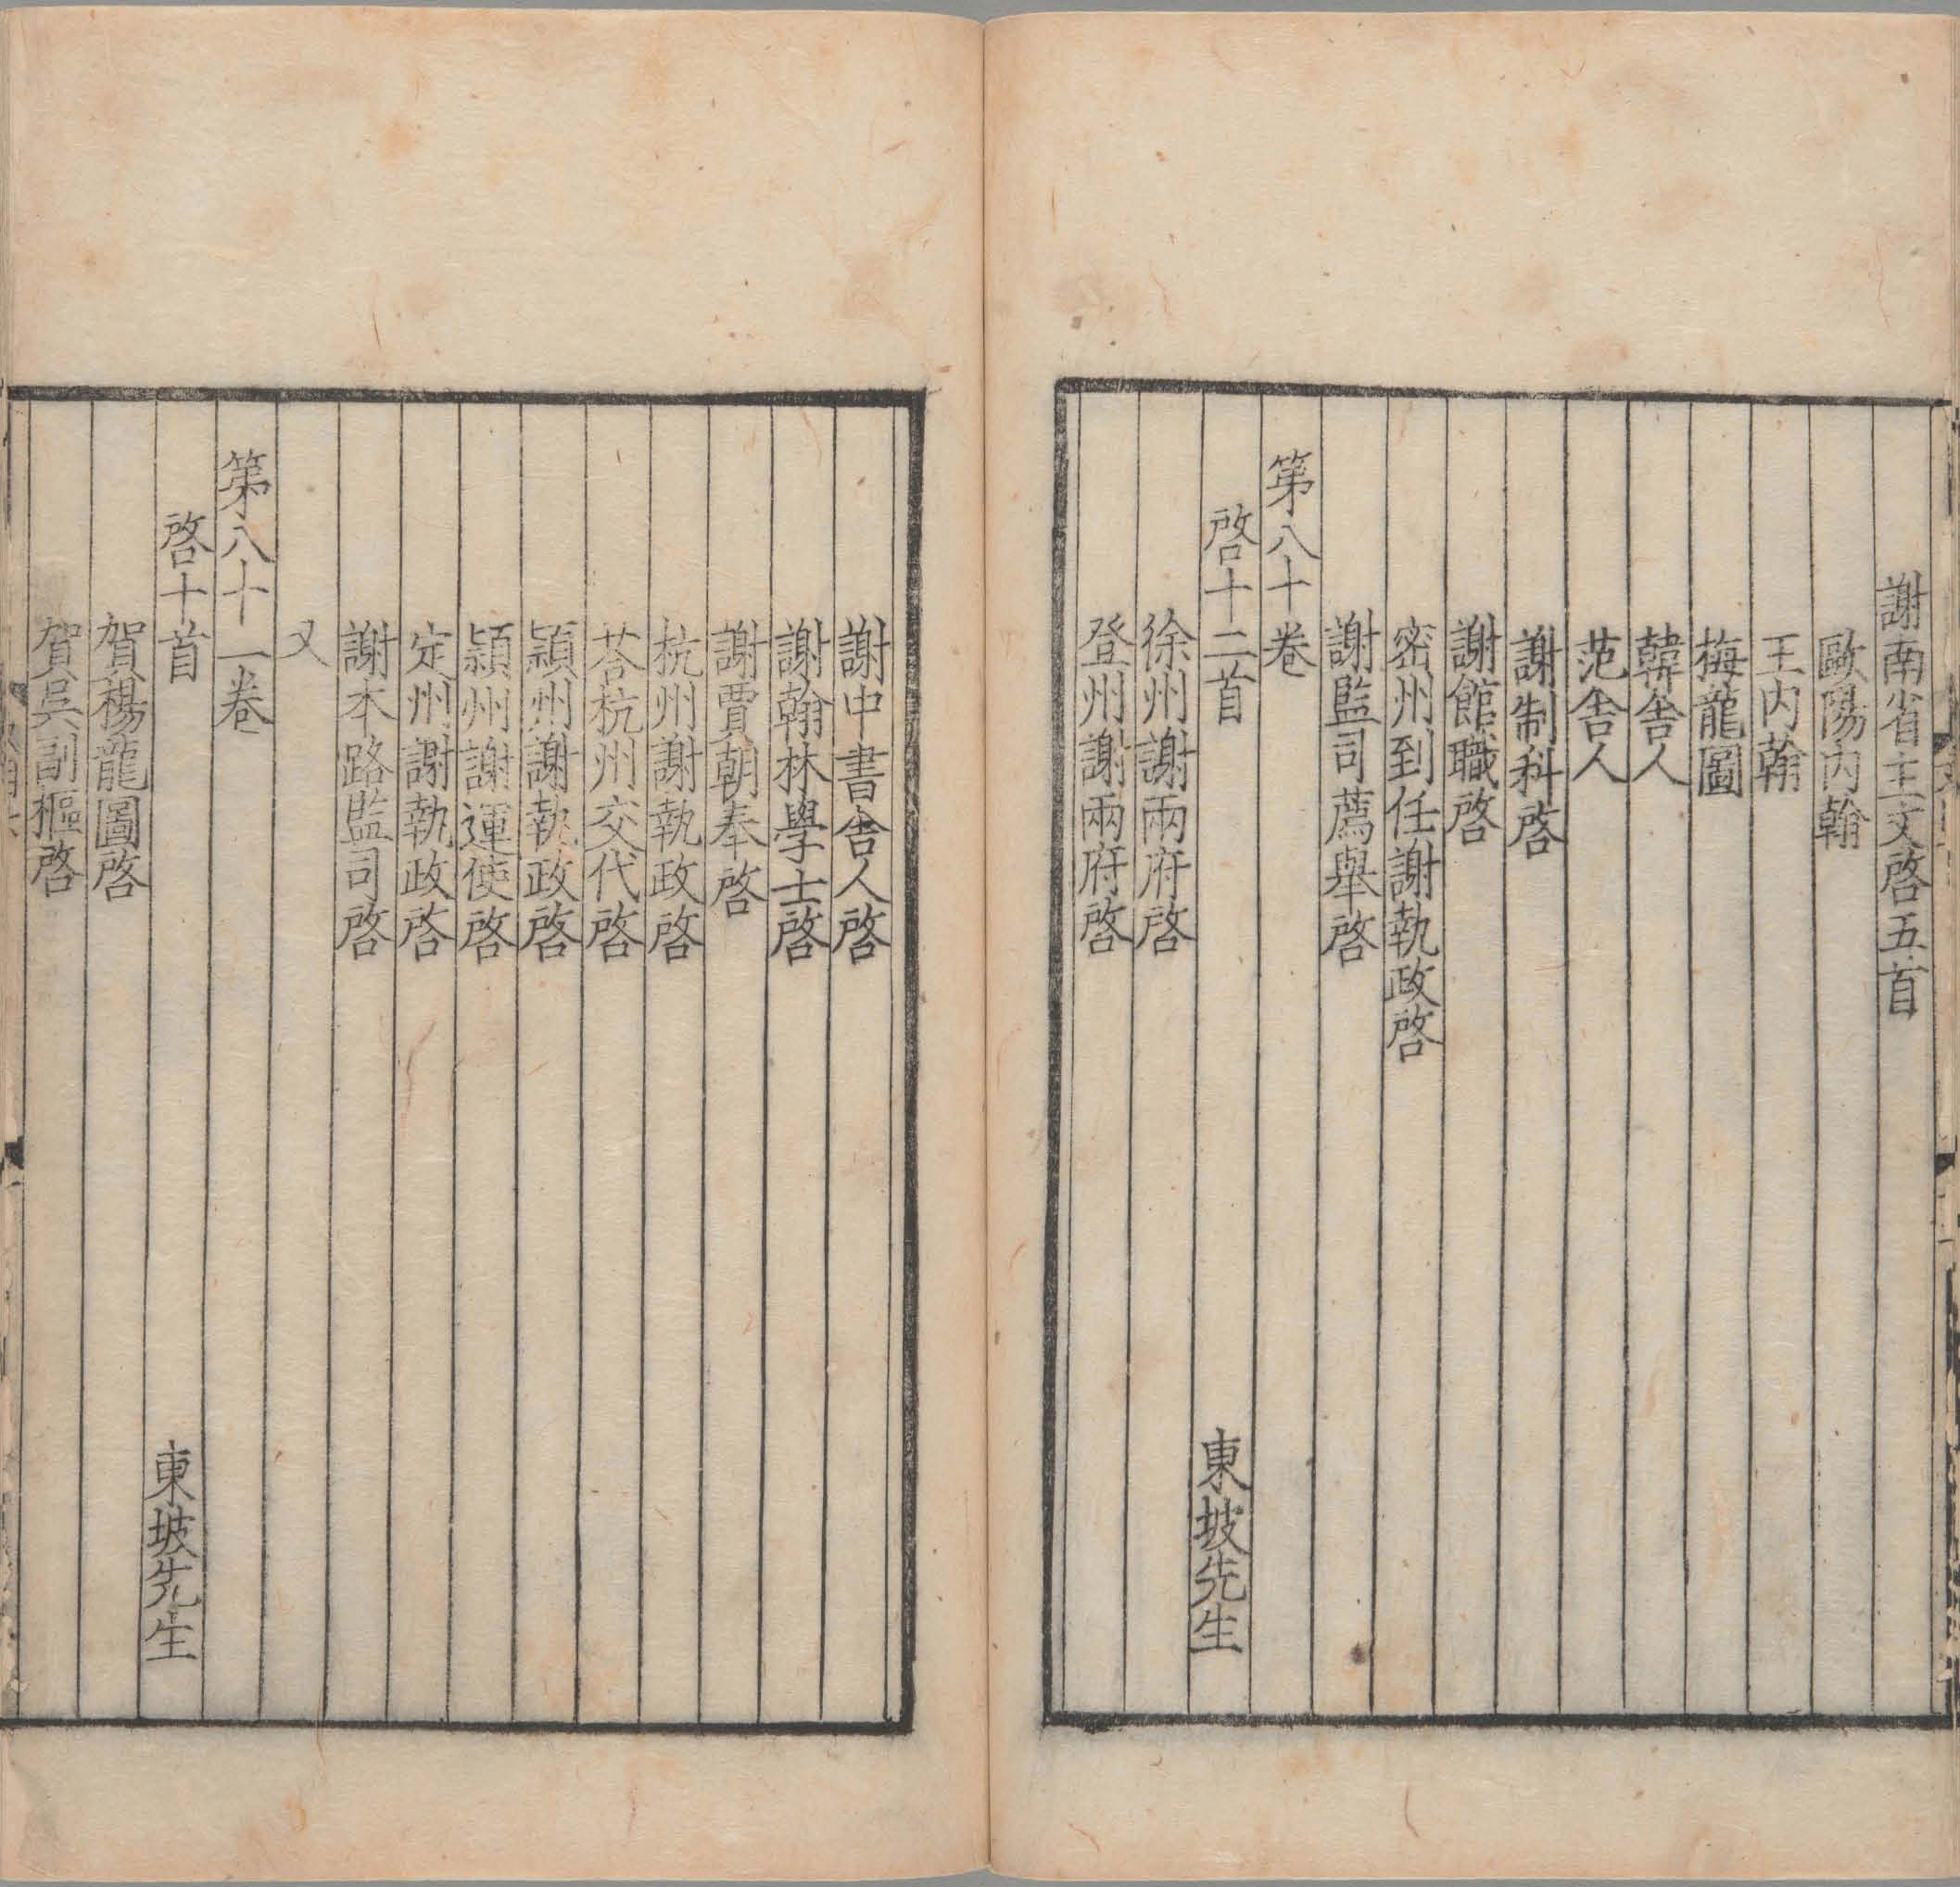 謝南省主文啓五首
歐陽内翰
王内翰
梅龍圖
韓舍人
范舍人
謝制科啓
謝館職啓
密州到任謝執政啓
謝監司薦舉啓
第八十卷
啓十二首 東坡先生
徐州謝兩府啓
登州謝兩府啓
謝中書舍人啓
謝翰林學士啓
謝賈朝奉啓
杭州謝執政啓
荅杭州交代啓
潁州謝執政啓
潁州謝運使啓
定州謝執政啓
謝本路監司啓
又
第八十一卷
啓十首 東坡先生
賀楊龍圖啓
賀吳副樞啓